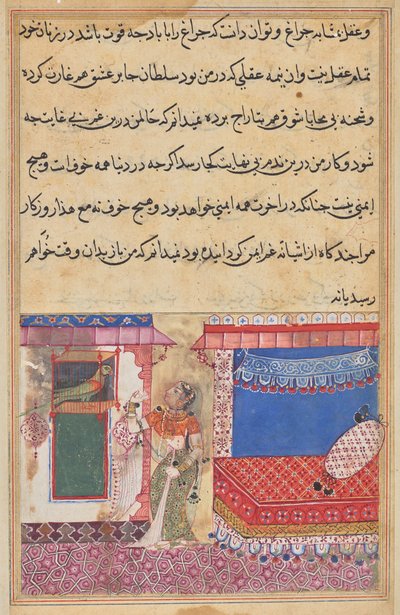 و عقل بمثابه چراغ و توان دانست که چراغ را با باد چه قوت باشد در زمان خود
تمام عقل نیست و ان نیمه عقلی که در من بود سلطان جابر عشق هم غارت کرده
و شحنه بی محابا شوق هم بتاراج برده نمیدانم که حال من درین غم بی غایت چه
شود و کار من درین ندم بی نهایت کجا رسد اگر چه در دنیا همه خوف است و هیچ
ایمنی نیست چنانکه در اخرت همه ایمنی خواهد بود و هیچ خوف نه مع هذا روزکار
مرا چند کاه از اشیانه غیر ایمن کردانیده بود نمیدانم که من باز بدان وقت خواهم
رسید یا نه